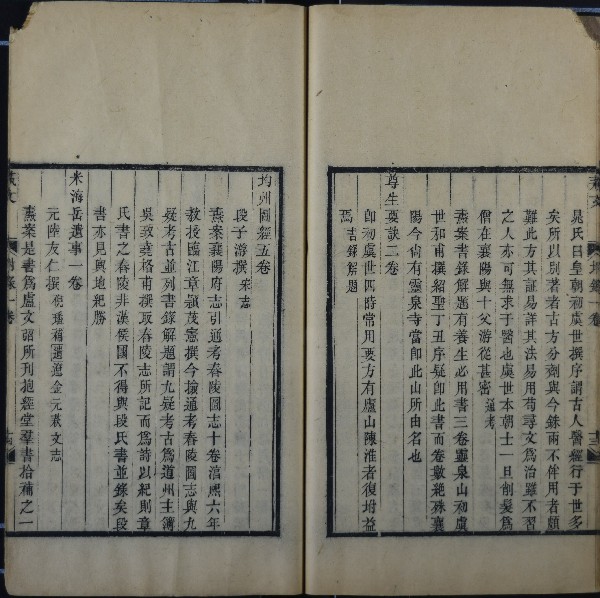 晁氏曰皇朝初虞世撰序謂古人醫經行于世多
矣所以別著者古方分劑與今銖兩不侔用者頗
難此方其証易詳其法易用苟尋文為治雖不習
之人亦可無求于醫也虞世本朝士一旦削髮為
僧在襄陽與十父游從甚密 通考
燕案書錄解題有養生必用書三卷靈泉山初虞
世和甫撰紹聖丁丑序疑即此書而卷數絶殊襄
陽今尚有靈泉寺當即此山所由名也
尊生要訣二卷
即初虞世四時常用要方有廬山陳淮者復坿益
焉 書錄解題
均州圖經五卷
段子游撰 宋志
燕案襄陽府志引通考春陵圖志十卷淳熙六年
教授臨江章潁茂憲撰今撿通考春陵圖志與九
疑考古並列書錄解題謂九疑考古為道州主簿
吳致堯格甫撰取春陵志所記而為詩以紀則章
氏書之春陵非漢侯國不得與段氏書並錄矣段
書亦見輿地紀勝
米海岳遺事一卷
元陸友仁撰 倪璠補遼金元藝文志
燕案是書為盧文弨所刊抱經堂羣書拾補之一